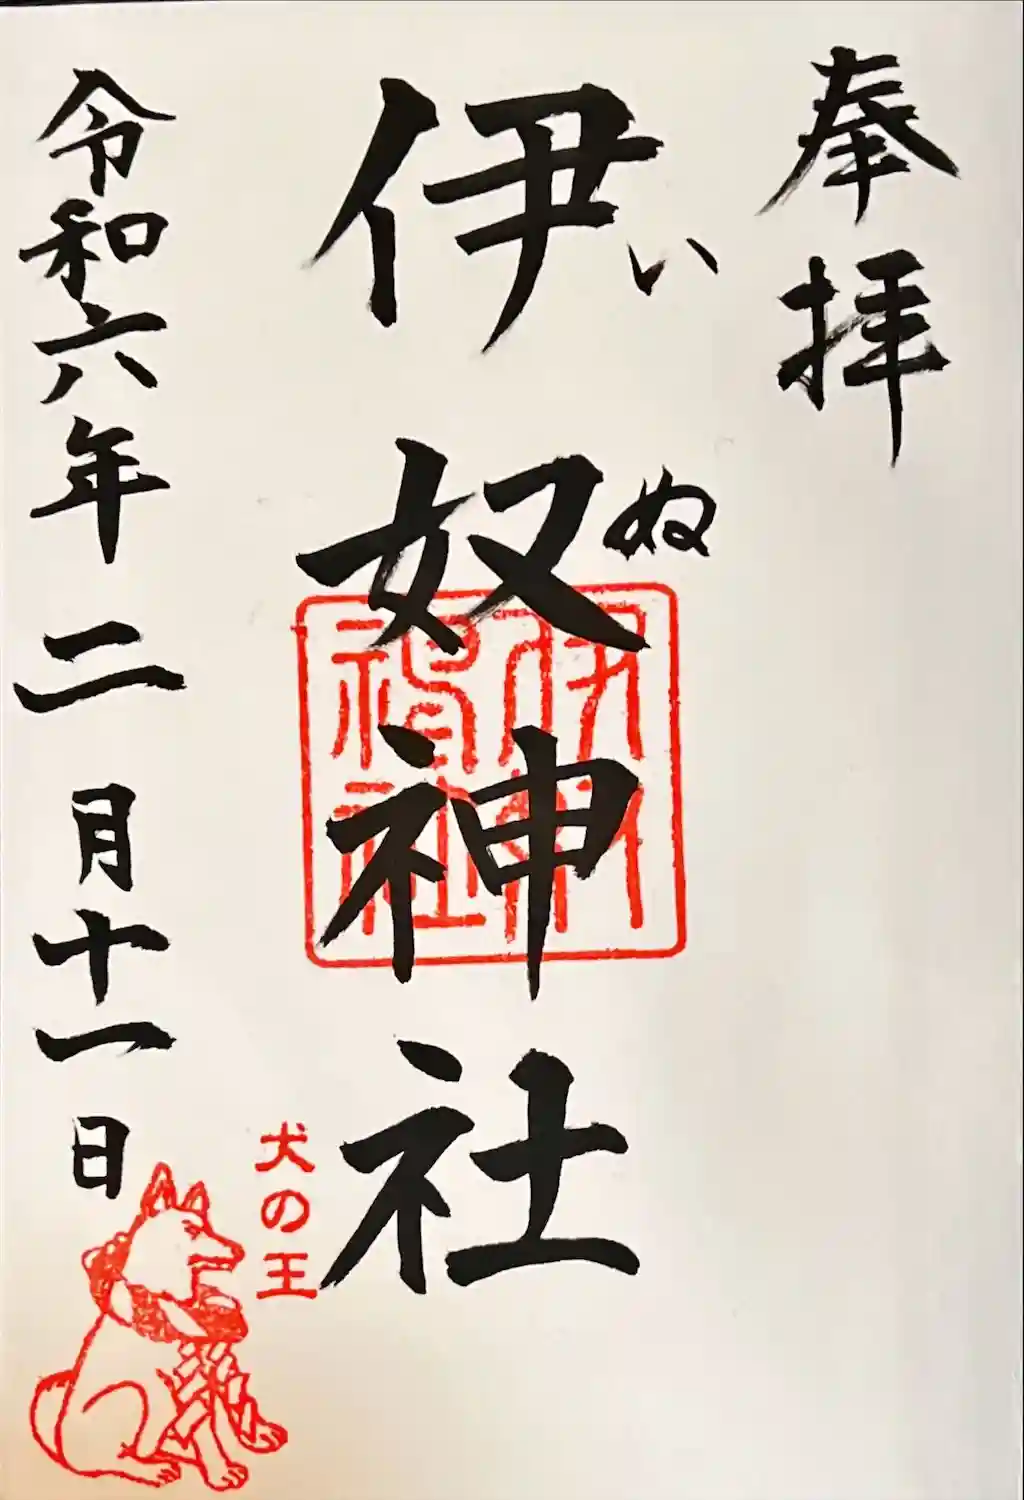 奉拝
いぬ
伊奴神社
伊奴
神社
犬の王
令和六年二月十一日